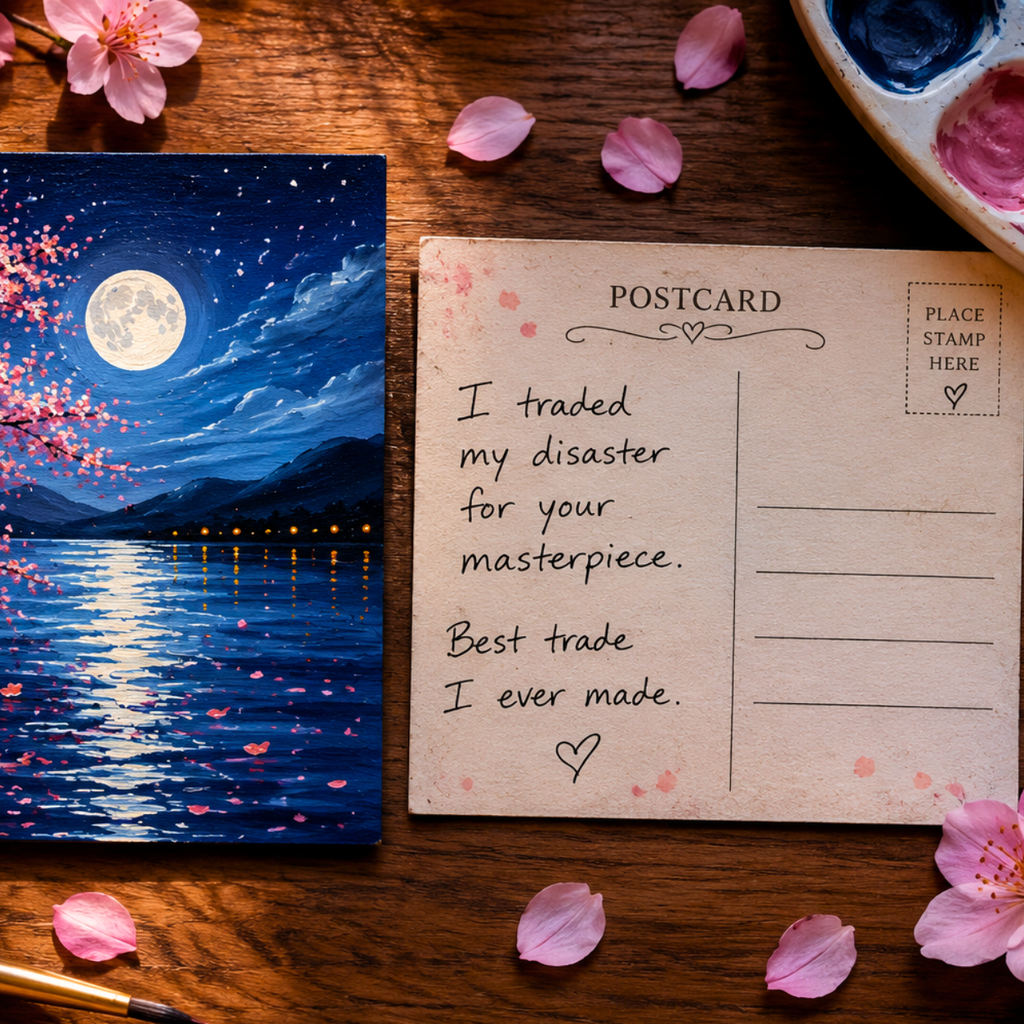 POSTCARD
PLACE
STAMP
HERE
I traded
my disaster
for your
masterpiece.
Best trade
I ever made.